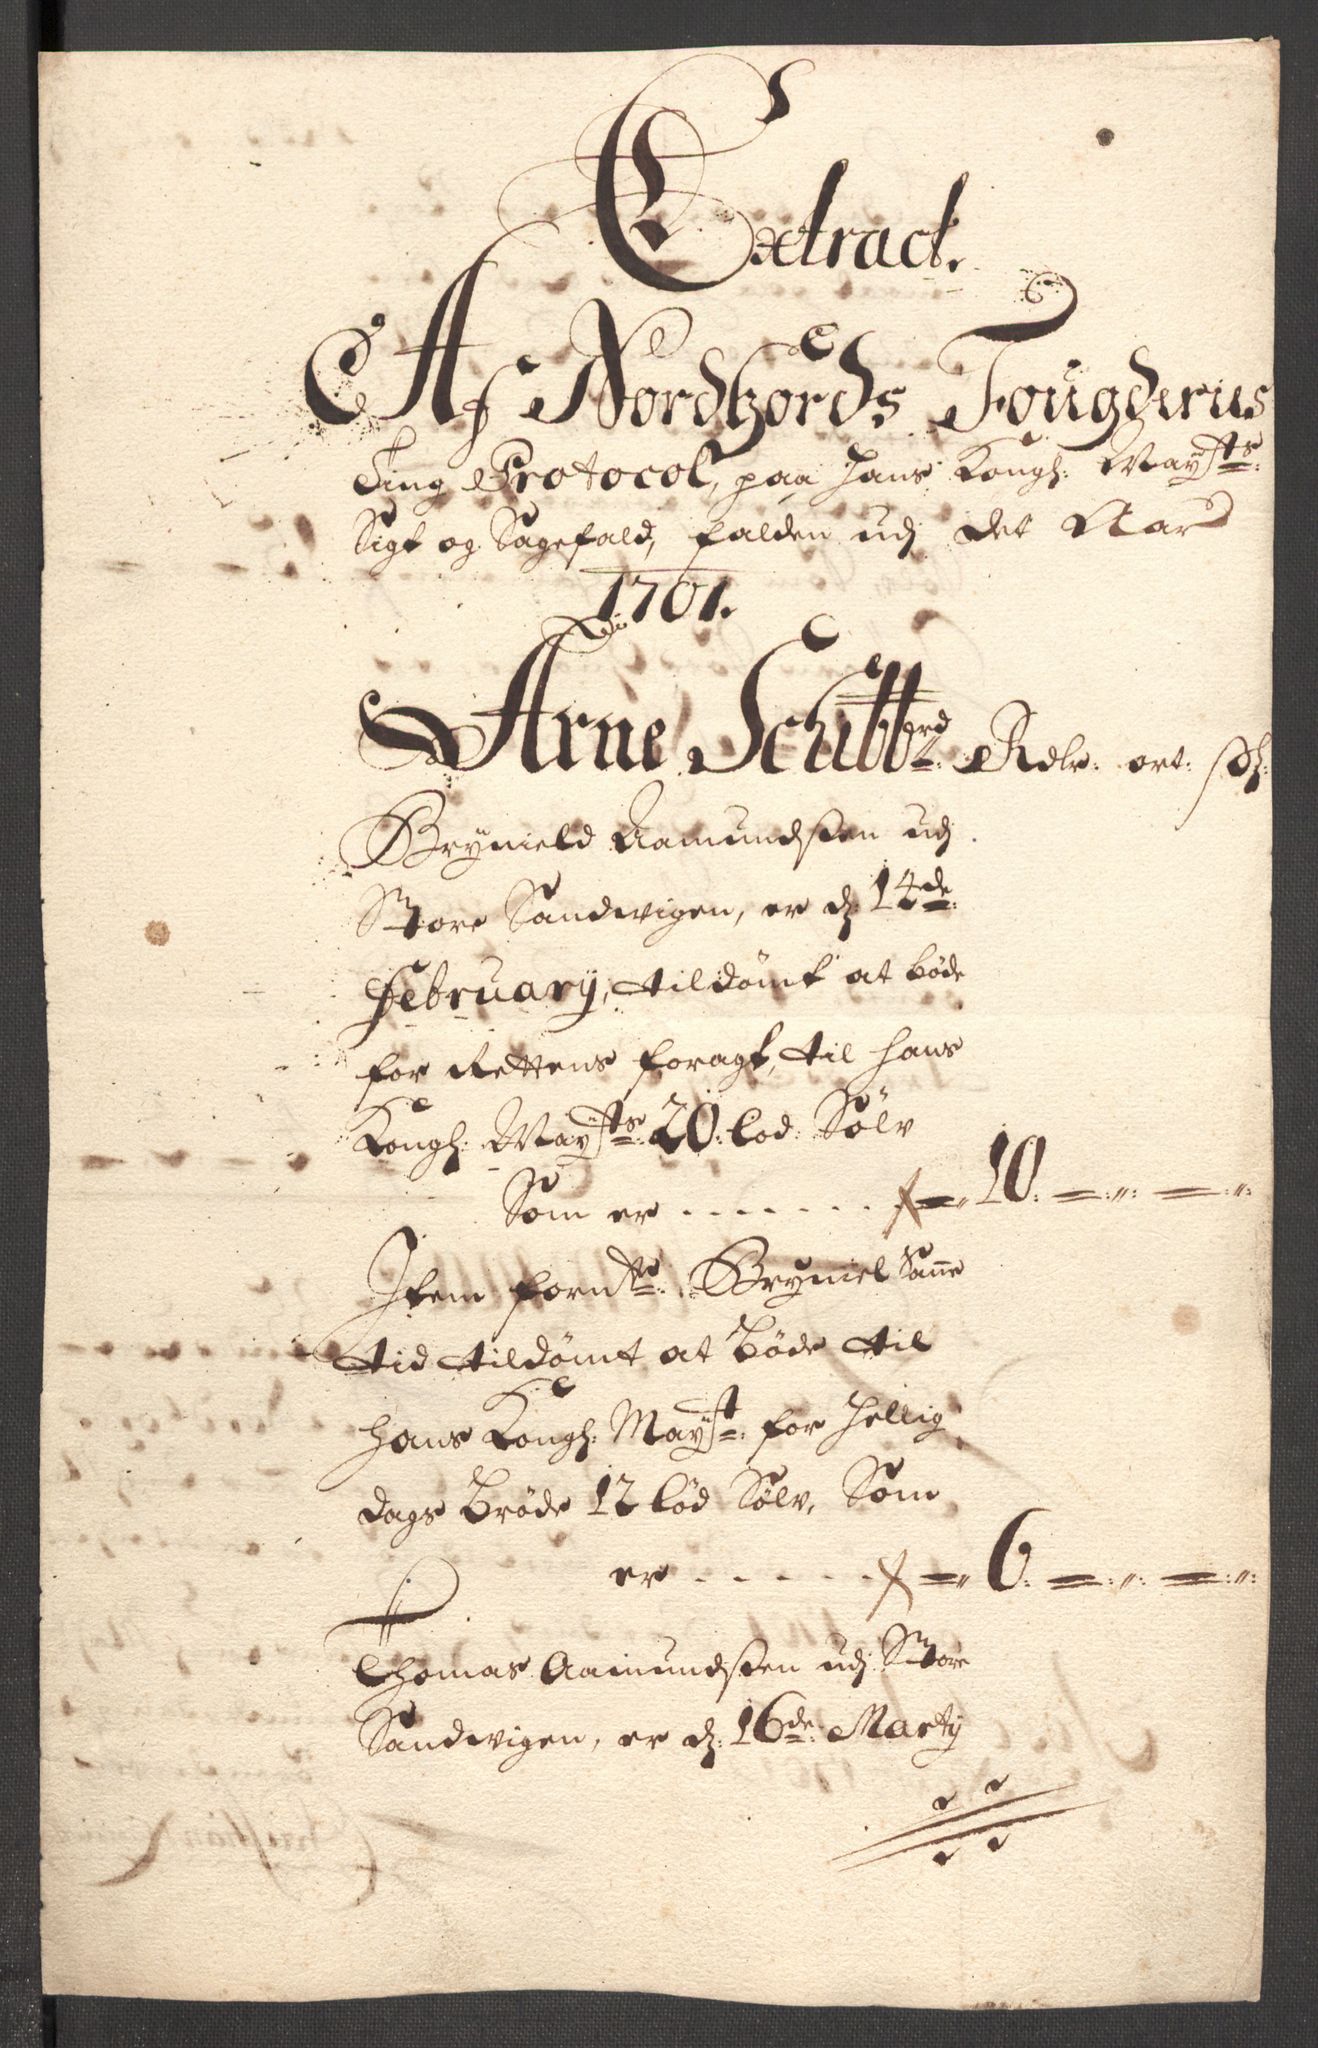 Extract.
Af Nordhords Fougderies
Ting Protocol, paa Hans Kongl: Mayts:
Sigt og Sagefald, falden udj det Aar
1701.
Arne Schibbrd Rdlr: ort: sk:
Brynield Aamundsten udj
Store Sandwigen, er d: 14de:
February, tildömt at böde
for Rettens foragt, til hans
Kongl: Mayts: 20: lod: Sölv
Som er . . . . . . . 10:
Item fornte: Bryniel Sa͞me
tid tildömt at Böde til
hans Kongl: Mayt: for Hellig
dags Bröde 12 lod Sölv, Som
er . . . . . . 6:
Thomas Aamundsten udj Store
Sandwigen, er d: 16de: Marty